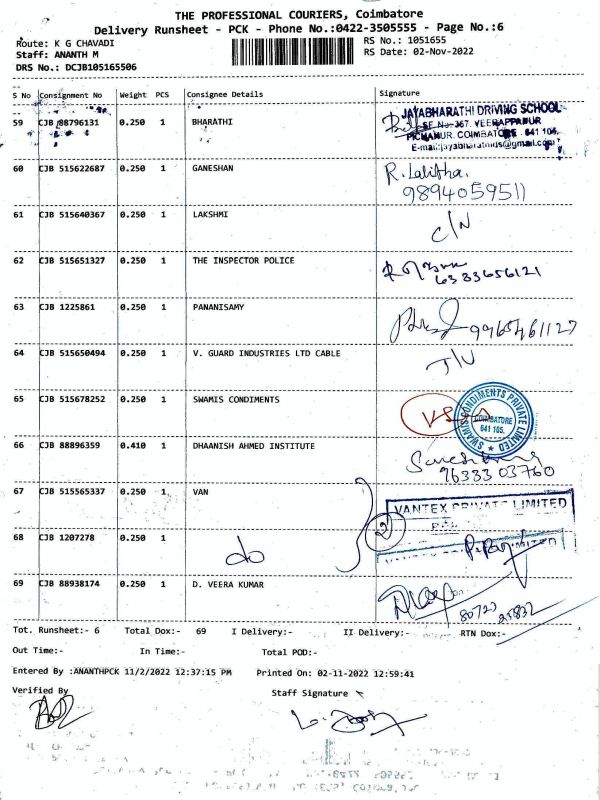 THE PROFESSIONAL COURIERS, Coimbatore
Delivery Runsheet - PCK - Phone No.:0422-3505555 - Page No.:6
Route: K G CHAVADI
RS No.: 1051655
Staff: ANANTH M
RS Date: 02-Nov-2022
DRS No.: DCJB105165506
S No Consignment No Weight PCS Consignee Details Signature
59 CJB 88796131 0.250 1 BHARATHI
JAYABHARATHI DRIVING SCHOOL
SF.No-367, VEERAPPANUR
PICHANUR, COIMBATORE - 641 105.
E-mail:jayabharathids@gmail.com
60 CJB 515622687 0.250 1 GANESHAN R. Lalitha.
9894059511
61 CJB 515640367 0.250 1 LAKSHMI C/N
62 CJB 515651327 0.250 1 THE INSPECTOR POLICE
6333656121
63 CJB 1225861 0.250 1 PANANISAMY 9965461127
64 CJB 515650494 0.250 1 V. GUARD INDUSTRIES LTD CABLE
65 CJB 515678252 0.250 1 SWAMIS CONDIMENTS
SWAMIS CONDIMENTS PRIVATE LIMITED
COIMBATORE
641 105.
66 CJB 88896359 0.410 1 DHAANISH AHMED INSTITUTE
9633303760
67 CJB 515565337 0.250 1 VAN
VANTEX PRIVATE LIMITED
68 CJB 1207278 0.250 1 do 2
69 CJB 88938174 0.250 1 D. VEERA KUMAR
80720
Tot. Runsheet:- 6 Total Dox:- 69 I Delivery:- II Delivery:- RTN Dox:-
Out Time:- In Time:- Total POD:-
Entered By :ANANTHPCK 11/2/2022 12:37:15 PM Printed On: 02-11-2022 12:59:41
Verified By Staff Signature